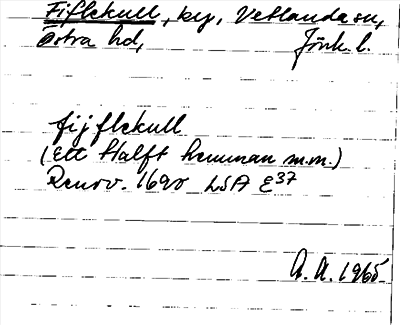 Fiflekull, by, Vetlanda sn,
Östra hd, Jönk. l.
fijflekull
(Ett Halft hemman m.m.)
Renov. 1690 LSA E37
A. A. 1965